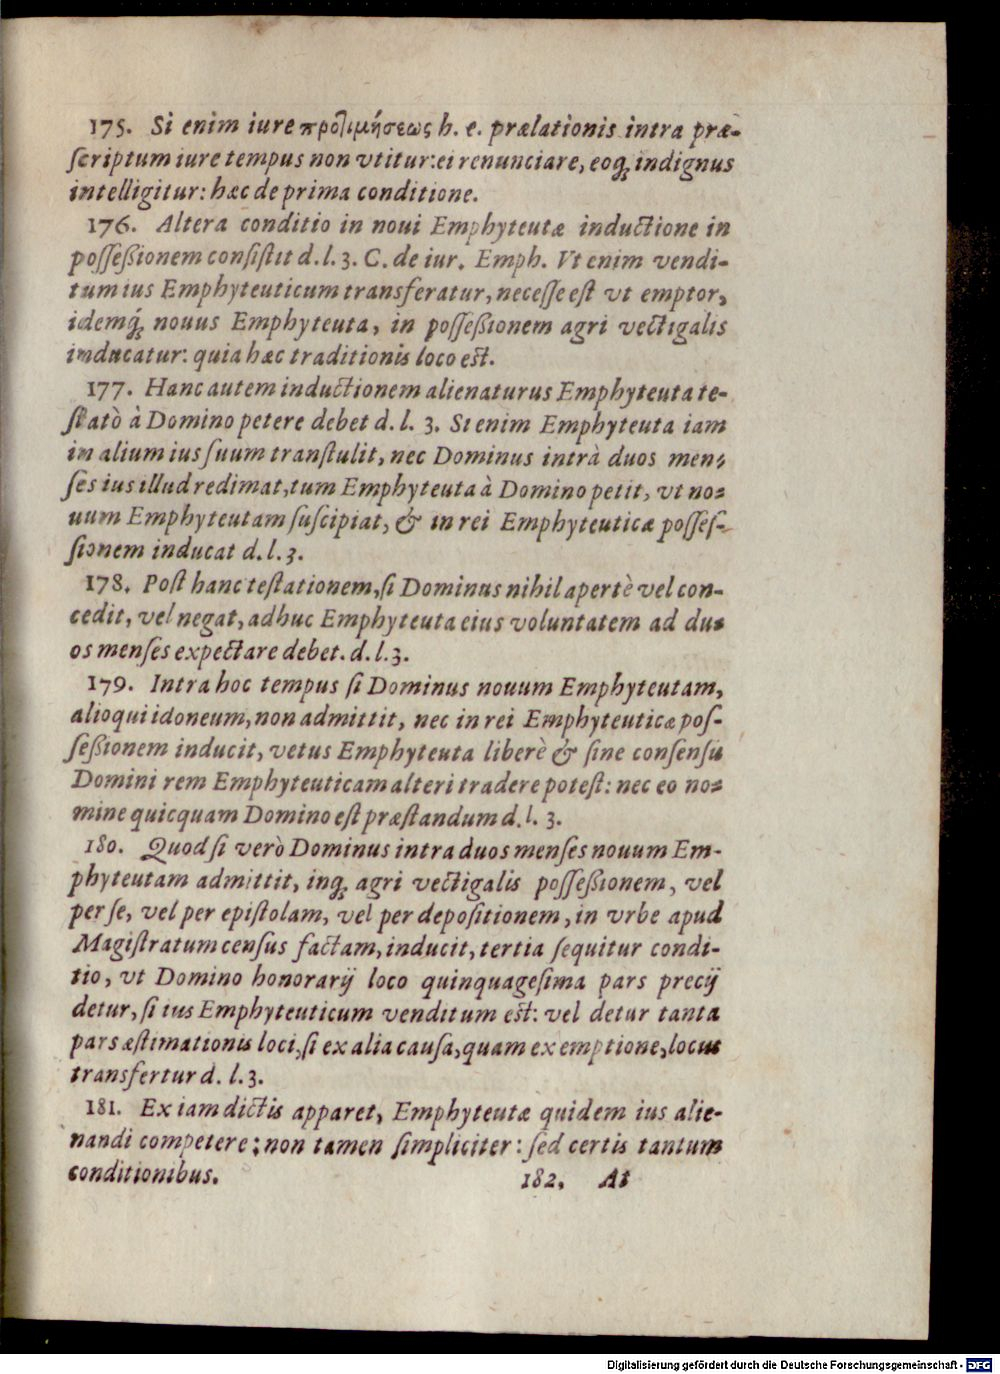 175. Si enim iure προτιμήσεως h. e. prælationis intra præ-
ſcriptum iure tempus non vtitur: ei renunciare, eoq́; indignus
intelligitur: hæc de prima conditione.
176. Altera conditio in noui Emphyteutæ inductione in
poſſeßionem conſiſtit d. l. 3. C. de iur. Emph. Vt enim vendi-
tum ius Emphyteuticum transferatur, neceſſe eſt vt emptor,
idemq́; nouus Emphyteuta, in poſſeßionem agri vectigalis
inducatur: quia hæc traditionis loco est.
177. Hanc autem inductionem alienaturus Emphyteuta te-
ſtatò à Domino petere debet d. l. 3. Si enim Emphyteuta iam
in alium ius ſuum tranſtulit, nec Dominus intrà duos men-
ſes ius illud redimat, tum Emphyteuta à Domino petit, vt no-
uum Emphyteutam ſuſcipiat, & in rei Emphyteuticæ poſſeſ-
ſionem inducat d. l. 3.
178. Poſt hanc teſtationem, ſi Dominus nihil apertè vel con-
cedit, vel negat, adhuc Emphyteuta eius voluntatem ad du-
os menſes expectare debet. d. l. 3.
179. Intra hoc tempus ſi Dominus nouum Emphyteutam,
alioqui idoneum, non admittit, nec in rei Emphyteuticæ poſ-
ſeßionem inducit, vetus Emphyteuta liberè & ſine conſenſu
Domini rem Emphyteuticam alteri tradere poteſt: nec eo no-
mine quicquam Domino eſt præſtandum d. l. 3.
180. Quod ſi verò Dominus intra duos menſes nouum Em-
phyteutam admittit, inq́; agri vectigalis poſſeßionem, vel
per ſe, vel per epiſtolam, vel per depoſitionem, in vrbe apud
Magiſtratum cenſus factam, inducit, tertia ſequitur condi-
tio, vt Domino honorarij loco quinquageſima pars precij
detur, ſi ius Emphyteuticum venditum est: vel detur tanta
pars æſtimationis loci, ſi ex alia cauſa, quam ex emptione, locus
transfertur d. l. 3.
181. Ex iam dictis apparet, Emphyteutæ quidem ius alie-
nandi competere; non tamen ſimpliciter: ſed certis tantum
conditionibus.
182. At
Digitalisierung gefördert durch die Deutsche Forschungsgemeinschaft - DFG